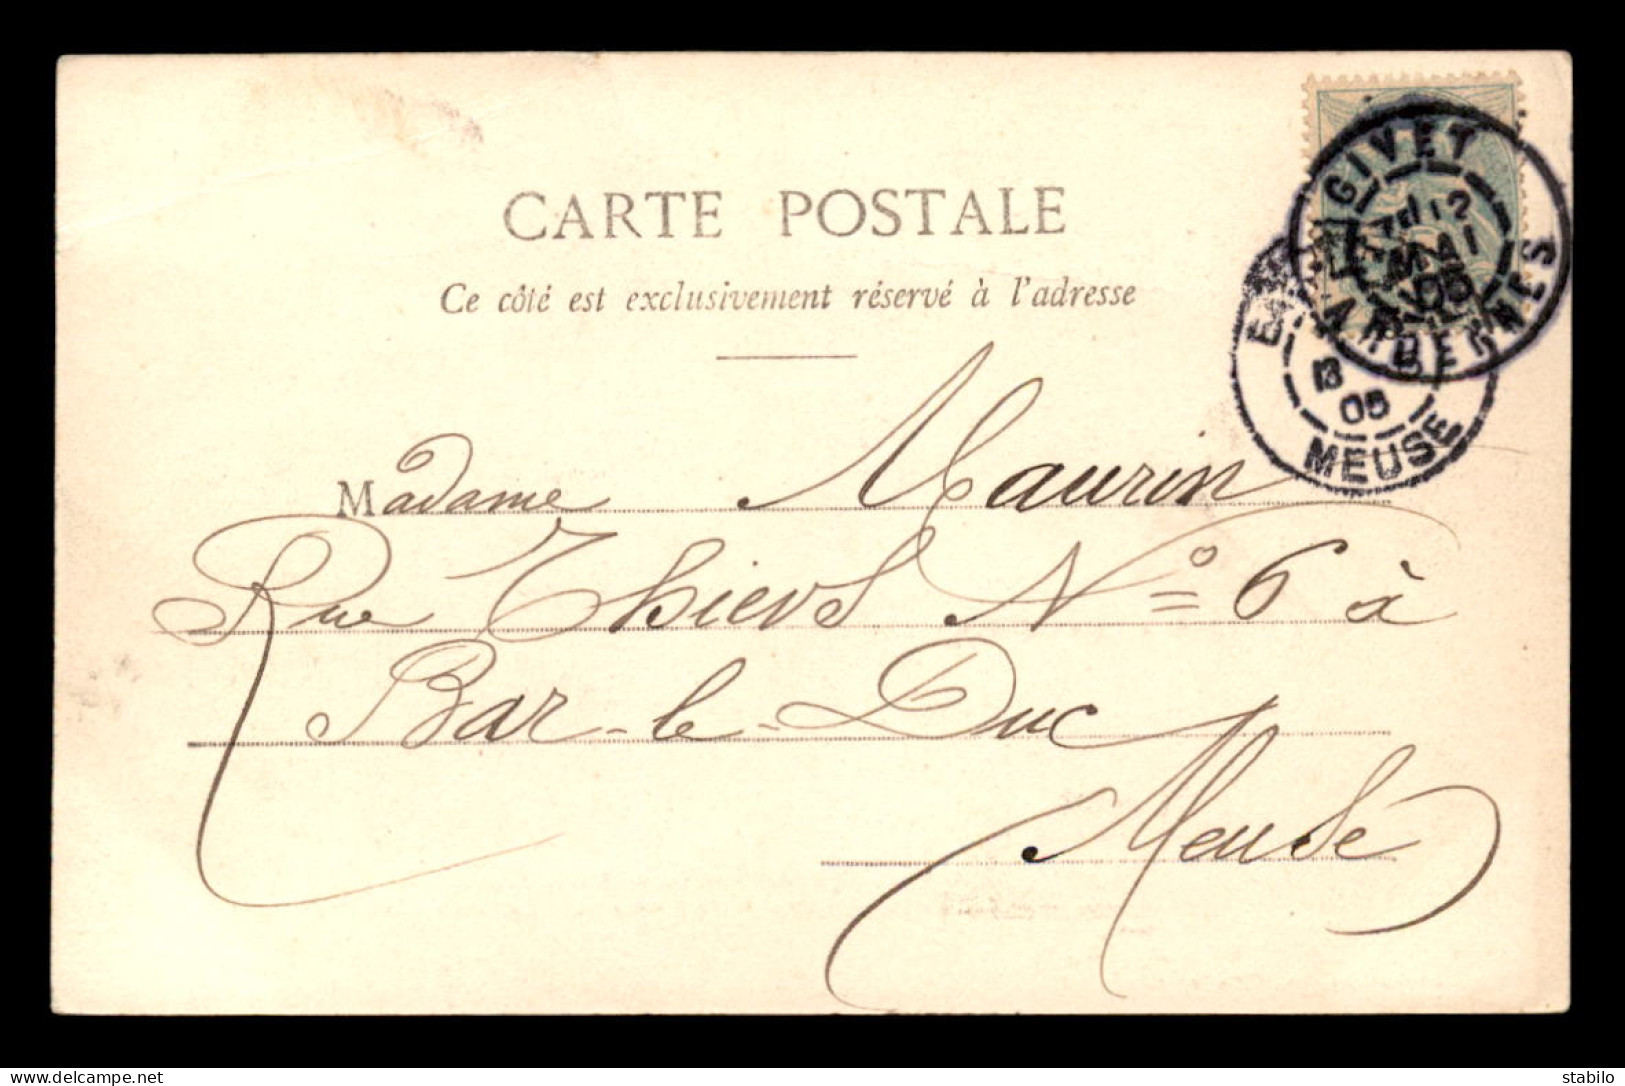 CARTE POSTALE
Ce côté est exclusivement réservé à l'adresse
GIVET
12
MAI
05
ARDENNES
13
05
MEUSE
Madame Maurin
Rue Thiers N° 6 à
Bar-le-Duc
Meuse
www.delcampe.net
stabilo